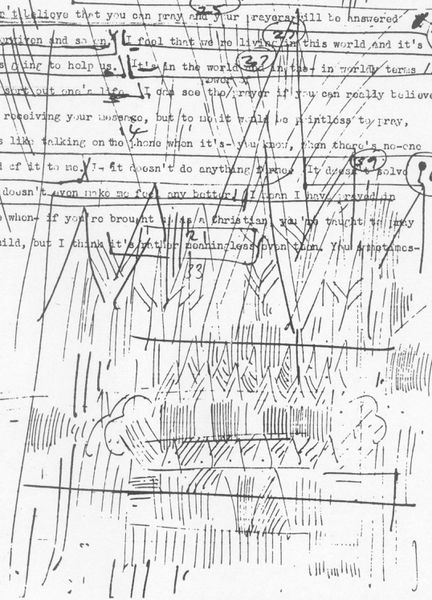 25
't believe that you can pray and your prayers will be answered
and so on. I feel that we're living in this world and it's
27
going to help us. It's in the world and in the- in worldly terms
37
power of
sort out one's life. I can see the prayer if you can really believe
receiving your message, but to me it would be pointless to pray,
14
like talking on the phone when it's- you know, when there's no-one
39
of it to me. I- it doesn't do anything for me. It doesn't solve
doesn't even make me feel any better. I mean I have prayed in
when- if you're brought up as a Christian, you're taught to pray
child, but I think it's rather meaningless even then. You sometimes-
21
33